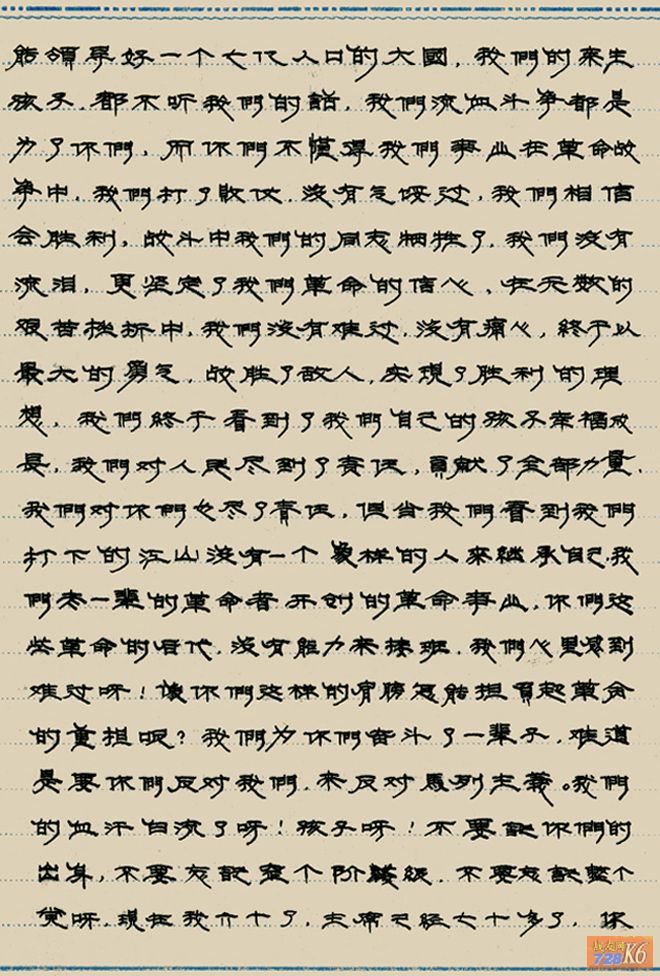 能領导好一个七亿人口的大國，我們的来生
孩子，都不听我們的話，我們流血斗争都是
为了你們，而你們不懂得我們事业在革命战
争中，我們打了敗仗，没有气馁过，我們相信
会胜利，战斗中我們的同志牺牲了，我們没有
流泪，更坚定了我們革命的信心，在无数的
艰苦挫折中，我們没有难过，没有痛心，終于以
最大的勇气，战胜了敌人，实現了胜利的理
想，我們終于看到了我們自己的孩子幸福成
長，我們对人民尽到了责任，貢献了全部力量，
我們对你們也尽了責任，但当我們看到我們
打下的江山没有一个象样的人來継承自己，我
們老一辈的革命者开创的革命事业，你們这
些革命的后代，没有能力来接班，我們心里感到
难过呀！像你們这样的肩膀怎能担負起革命
的重担呢？我們为你們奋斗了一輩子，难道
是要你們反对我們，来反对馬列主義。我們
的血汗白流了呀！孩子呀！不要説你們的
出身，不要忘記整个阶級，不要忘記整个
党呀，現在我六十了，主席已经七十多了，你
靓友网
728K6